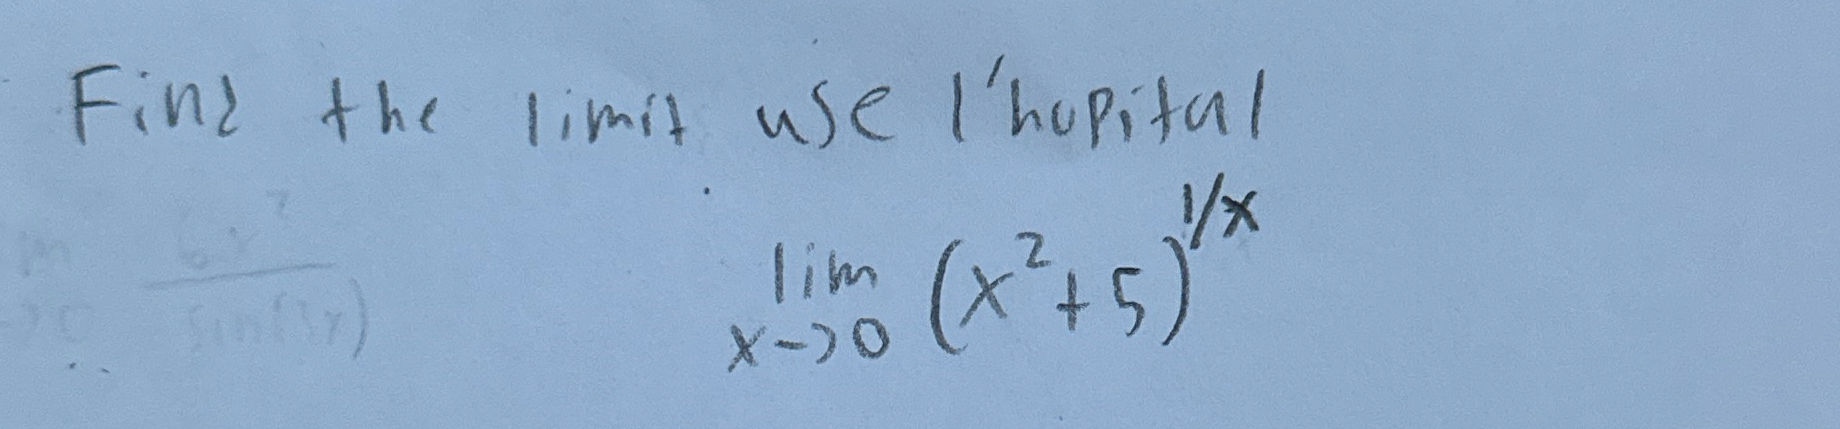 Find the limit use l'hopital
lim x->0 (x²+5)^1/x